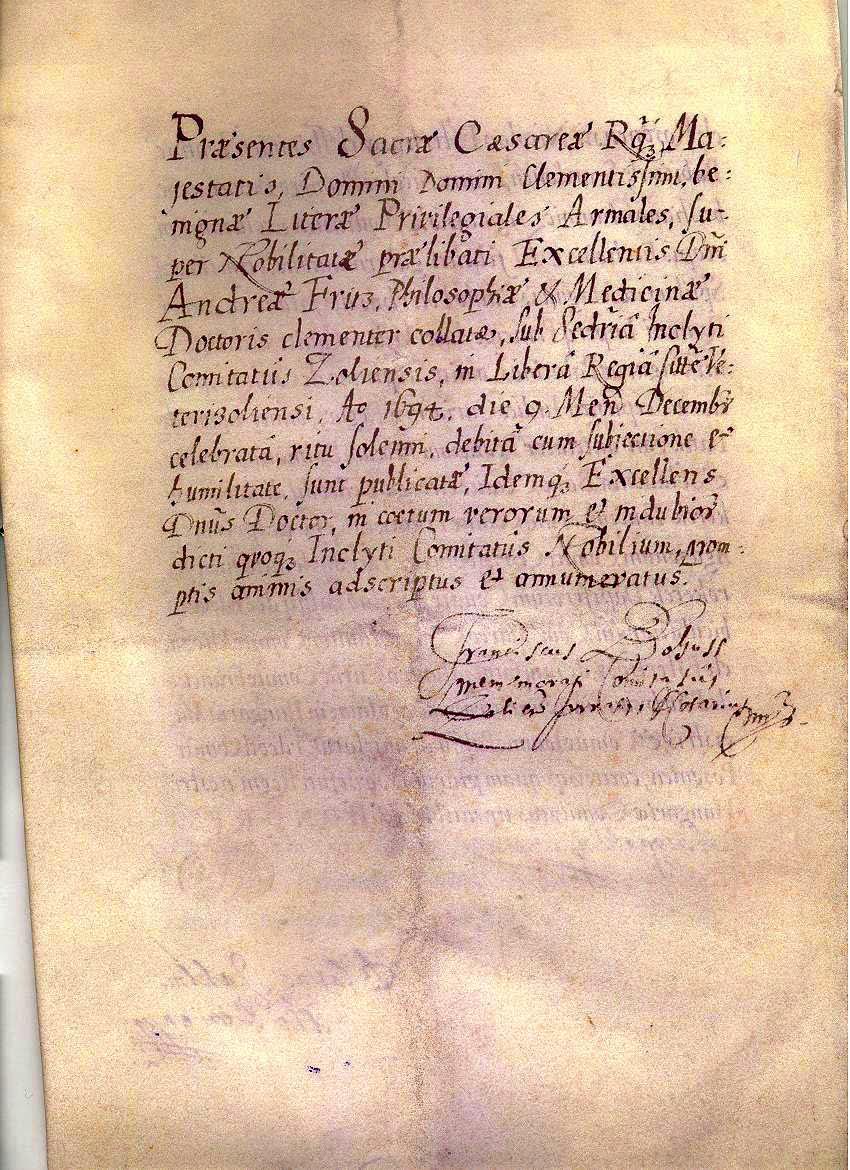 Præsentes Sacræ Cæsareæ Rq̃ꝫ Ma:
jestatis, Domini Domini Clementissimi, be:
nignæ Literæ Privilegiales Armales, su:
per Nobilitate prælibati Excellentis Dñi
Andreæ Friz, Philosophiæ & Medicinæ
Doctoris clementer collatæ, sub Sedriâ Inclyti
Comitatûs Zoliensis, in Liberâ Regiâ Ve:
terisoliensi, Aõ 1694. die 9. Men Decembr
celebratâ, ritu solemni, debitâ cum subjectione et
humilitate, sunt publicatæ, Idemqꝫ Excellens
Dnũs Doctor, in coetum verorum et indubior
dicti qvoqꝫ Inclyti Comitatûs Nobilium, prom:
ptis animis adscriptus et annumeratus.
Franciscus
Comitatus
Notarius